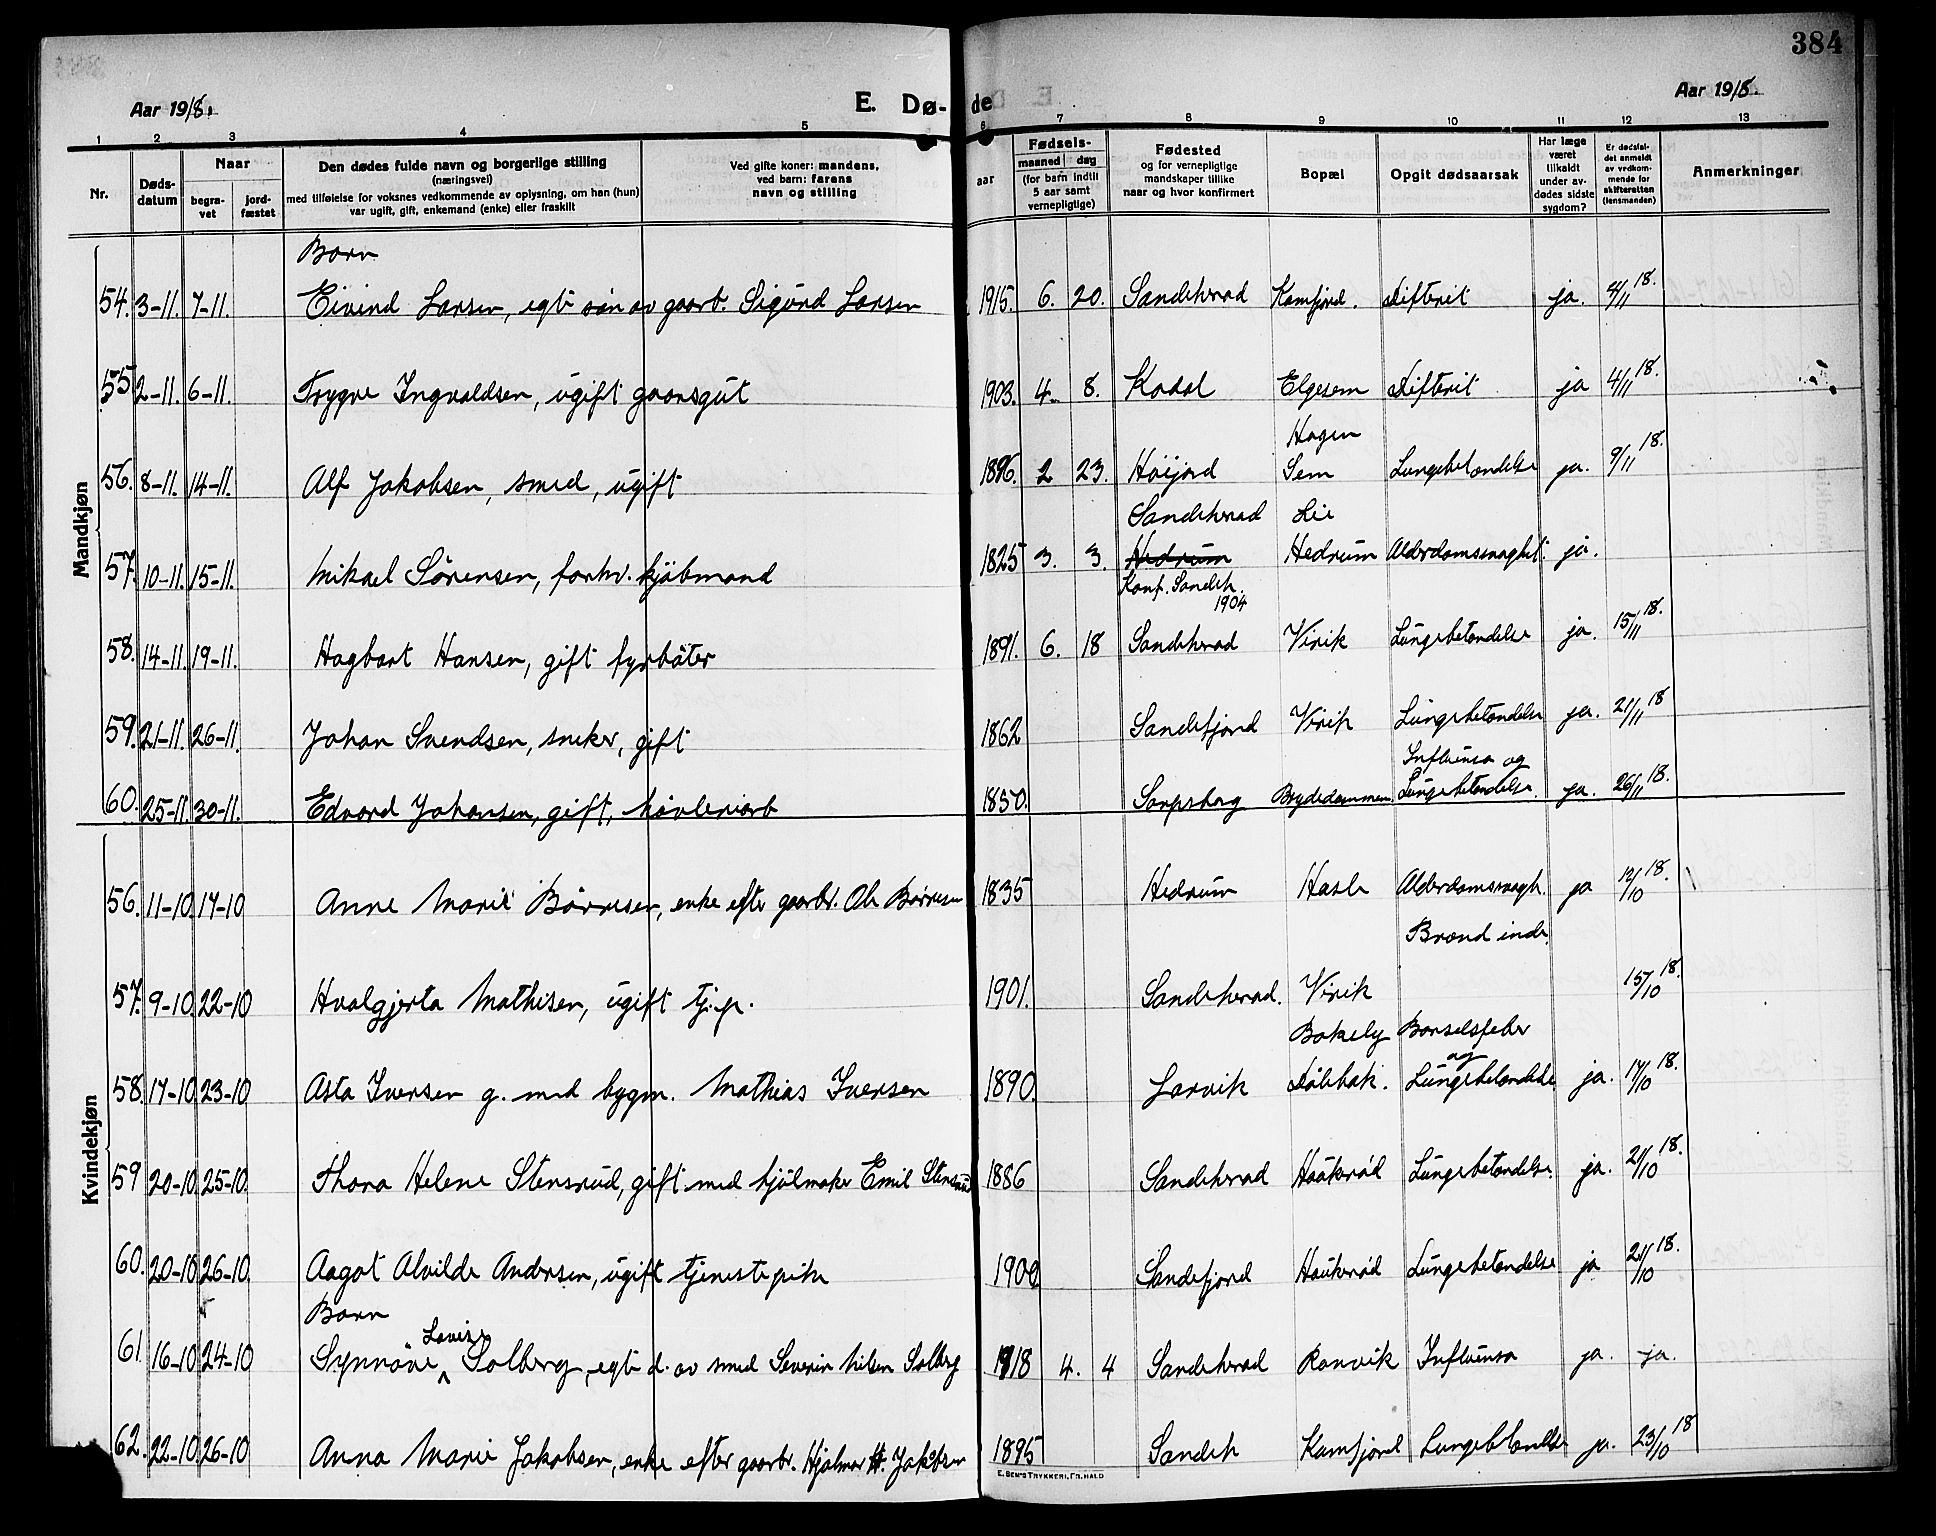 384
Aar 1918.
E. Dø-
de
Aar 1918.
1 2 3 4 5 6 7 8 9 10 11 12 13
Nr. Døds-datum Naar begra-vet jord-fæstet Den dødes fulde navn og borgerlige stilling (næringsvei) med tilføielse for voksnes vedkommende av oplysning, om han (hun) var ugift, gift, enkemand (enke) eller fraskilt Ved gifte koner: mandens, ved barn: farens navn og stilling aar Fødsels- maaned dag (for barn indtil 5 aar samt vernepligtige) Fødested og for vernepligtige mandskaper tillike naar og hvor konfirmert Bopæl Opgit dødsaarsak Har læge været tilkaldt under av-dødes sidste sygdom? Er dødsfal-det anmeldt av vedkom-mende for skifteretten (lensmanden) Anmerkninger
Mandkjøn
Barn
54. 3-11. 7-11. Eivind Larsen, egte søn av gaarb. Sigurd Larsen 1915. 6. 20. Sandeherad Kamfjord. Difterit ja. 4/11 18.
55 2-11. 6-11. Trygve Ingvaldsen, ugift gaarsgut 1903. 4. 8. Kodal Elgesem Difterit ja 4/11 18.
Hagen
56. 8-11. 14-11. Alf Jakobsen, smed, ugift 1896. 2 23. Høijord Sem Lungebetændelse ja. 9/11 18.
Sandeherad Lie
57. 10-11. 15-11. Mikael Sørensen, forhv. kjøbmand 1825 3. 3. Hedrum Hedrum Alderdomssvaghet. ja.
Konf. Sandeh. 1904
58. 14-11. 19-11. Hagbart Hansen, gift fyrbøter 1891. 6. 18 Sandeherad Virik Lungebetændelse ja. 15/11 18.
59. 21-11. 26-11. Johan Svendsen, sneker, gift 1862 Sandefjord Virik Lungebetændelse ja. 21/11 18
Influensa og
60. 25-11. 30-11. Edvard Johansen, gift, høvleriarb 1850. Sarpsborg Brydedammen Lungebetændelse. ja. 26/11 18.
Kvindekjøn
56. 11-10 17-10 Anne Marie Børresen, enke efter gaarbr. Ole Børresen 1835 Hedrum Hasle Alderdomssvagh. ja 12/10 18.
Brænd inde.
57. 9-10. 22-10 Hvalgjerta Mathisen, ugift tj.p. 1901. Sandeherad. Virik 15/10 18.
Bakely Barselsfeber
og
58. 17-10 23-10 Asta Iversen g. med bygm. Mathias Iversen 1890. Larvik Dølebak. Lungebetændelse ja. 17/10 18.
59 20-10 25-10. Thora Helene Stensrud, gift med hjulmaker Emil Stensrud 1886 Sandeherad Haukerød Lungebetændelse. ja. 21/10 18.
60. 20-10 26-10. Aagot Alvilde Andersen, ugift tjenestepike 1900 Sandefjord Haukerød Lungebetændelse ja 21/10 18.
Barn
Lovise
61. 16-10 24-10 Synnøve Solberg, egte d. av smed Severin Nilsen Solberg 1918 4. 4 Sandeherad Ranvik Influensa ja. ja.
62. 22-10. 26-10 Anna Marie Jakobsen, enke efter gaarbr. Hjalmar H. Jakobsen 1895 Sandeh Kamfjord Lungebetændelse ja. 23/10 18
E. SEM'S TRYKKERI, FR.HALD